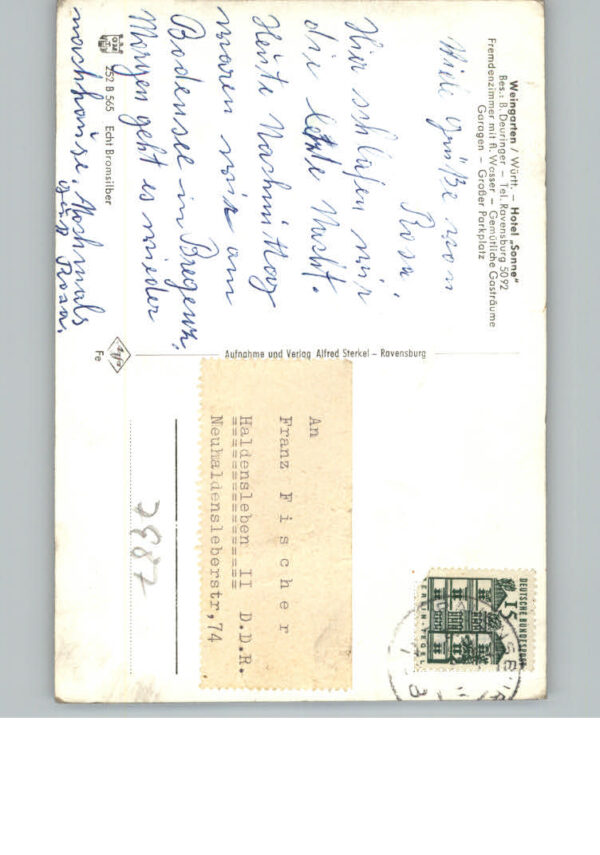 Weingarten / Württ. – Hotel „Sonne"
Bes.: B. Deuringer – Tel. Ravensburg 5092
Fremdenzimmer mit fl. Wasser – Gemütliche Gasträume
Garagen – Großer Parkplatz
Viele Grüße von
Rosa.
Hier schlafen wir
die letzte Nacht.
Heute Nachmittag
waren wir am
Bodensee in Bregenz.
Morgen geht es wieder
nachhause. Nochmals
Rosa.
252 B 565 Echt Bromsilber
Agfa
Fe
Aufnahme und Verlag Alfred Sterkel – Ravensburg
An
Franz Fischer
Haldensleben II D.D.R.
================
Neuhaldensleberstr,74
2987
DEUTSCHE BUNDESPOST
15
BERLIN-TEGEL